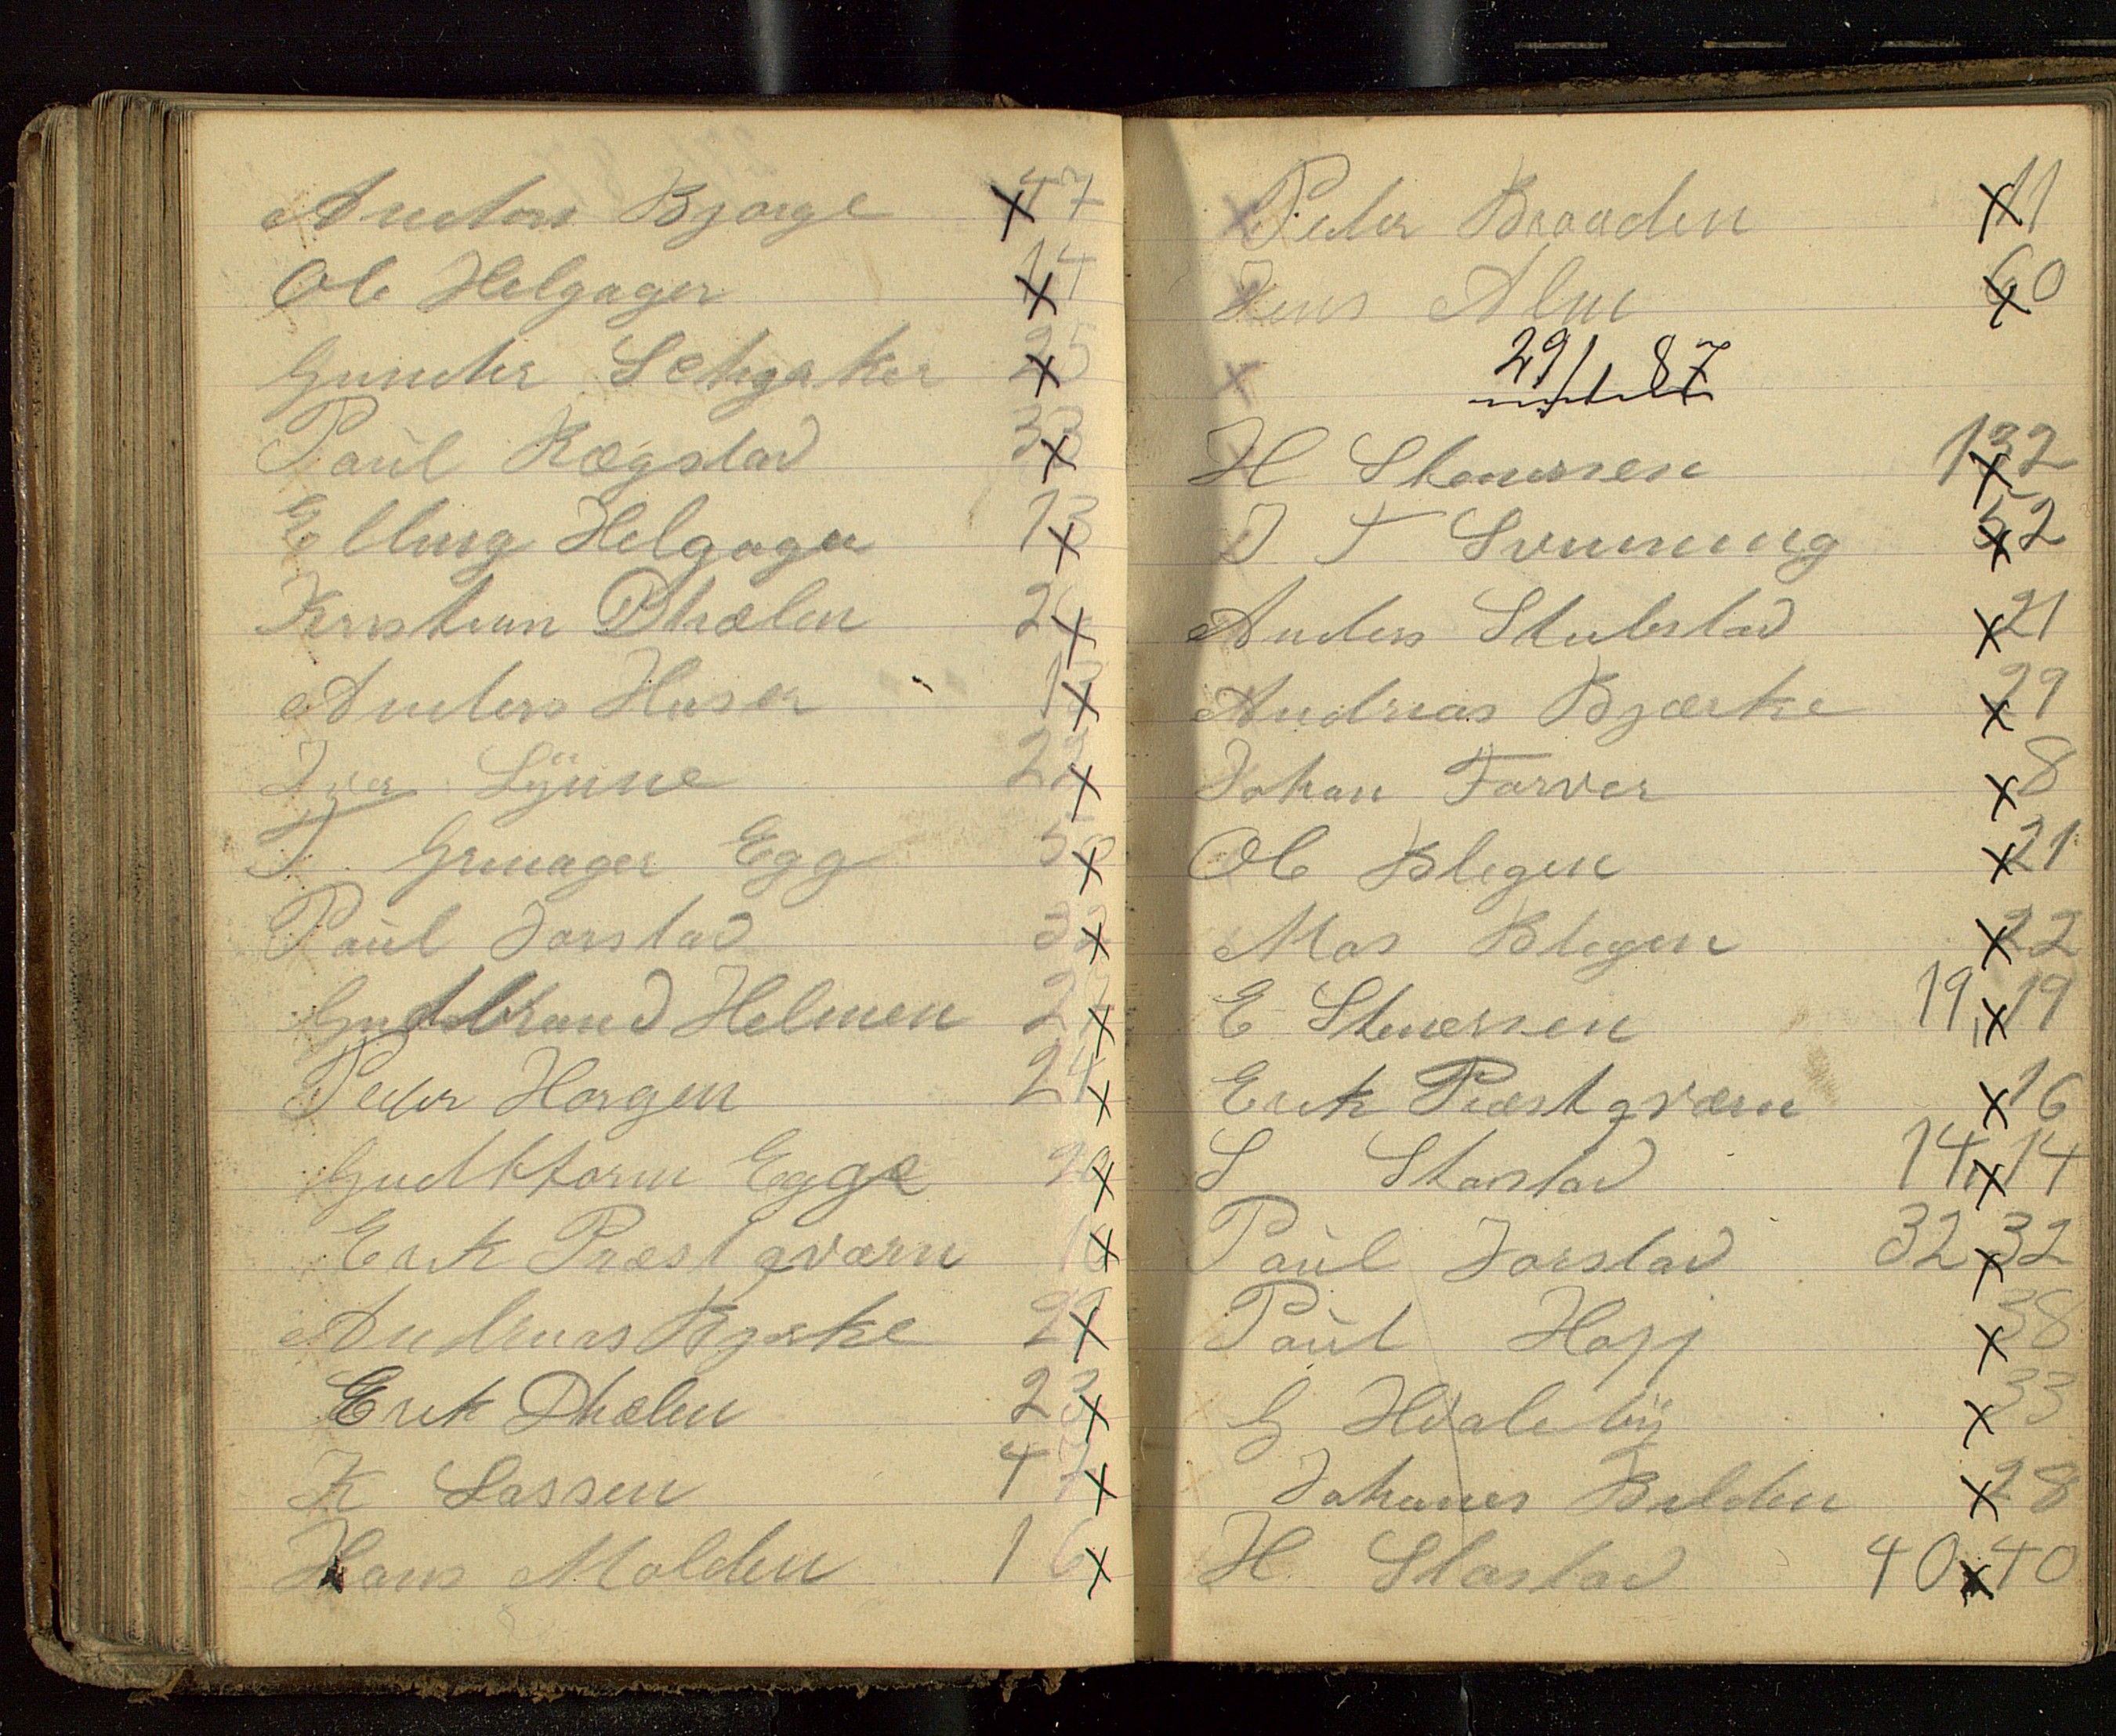 Anders Bjørge x 47
Ole Helgager 14 x
Gunder Selegaker 25 x
Paul Rægstad 33 x
Elling Helgager 13 x
Kristian Dhælen 2 x
Anders Huser 13 x
Iver Lÿnne 22 x
T Grinager Egg 5 x
Paul Jorstad 32 x
Gudbrand Helmen 27 x
Peder Horgen 24 x
Gudttorm Egge 20 x
Erik Præstqværn 16 x
Andreas Bjerke 29 x
Erik Dhælen 23 x
K Lassen 47 x
Hans Molden 16 x
x Peder Braaden x 11
x Jens Alm x 60
x 29/1 87
H Stenersen 132 x
J T Svenning 52 x
Anders Stubstad x 21
Andreas Bjærke x 29
Johan Farver x 8
Ole Blegen x 21
Mos Blegen x 22
E Stenersen 19 x 19
Erik Præstqværn x 16
S Stastad 14 x 14
Paul Jorstad 32 x 32
Paul Hopp x 38
G Hvalebÿ x 33
Johanes Bilden x 28
H Stastad 40 x 40